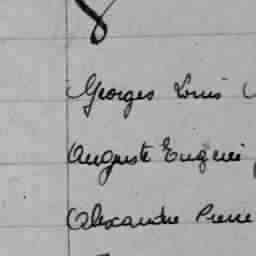 Georges Louis
Auguste Eugène
Alexandre Pierre